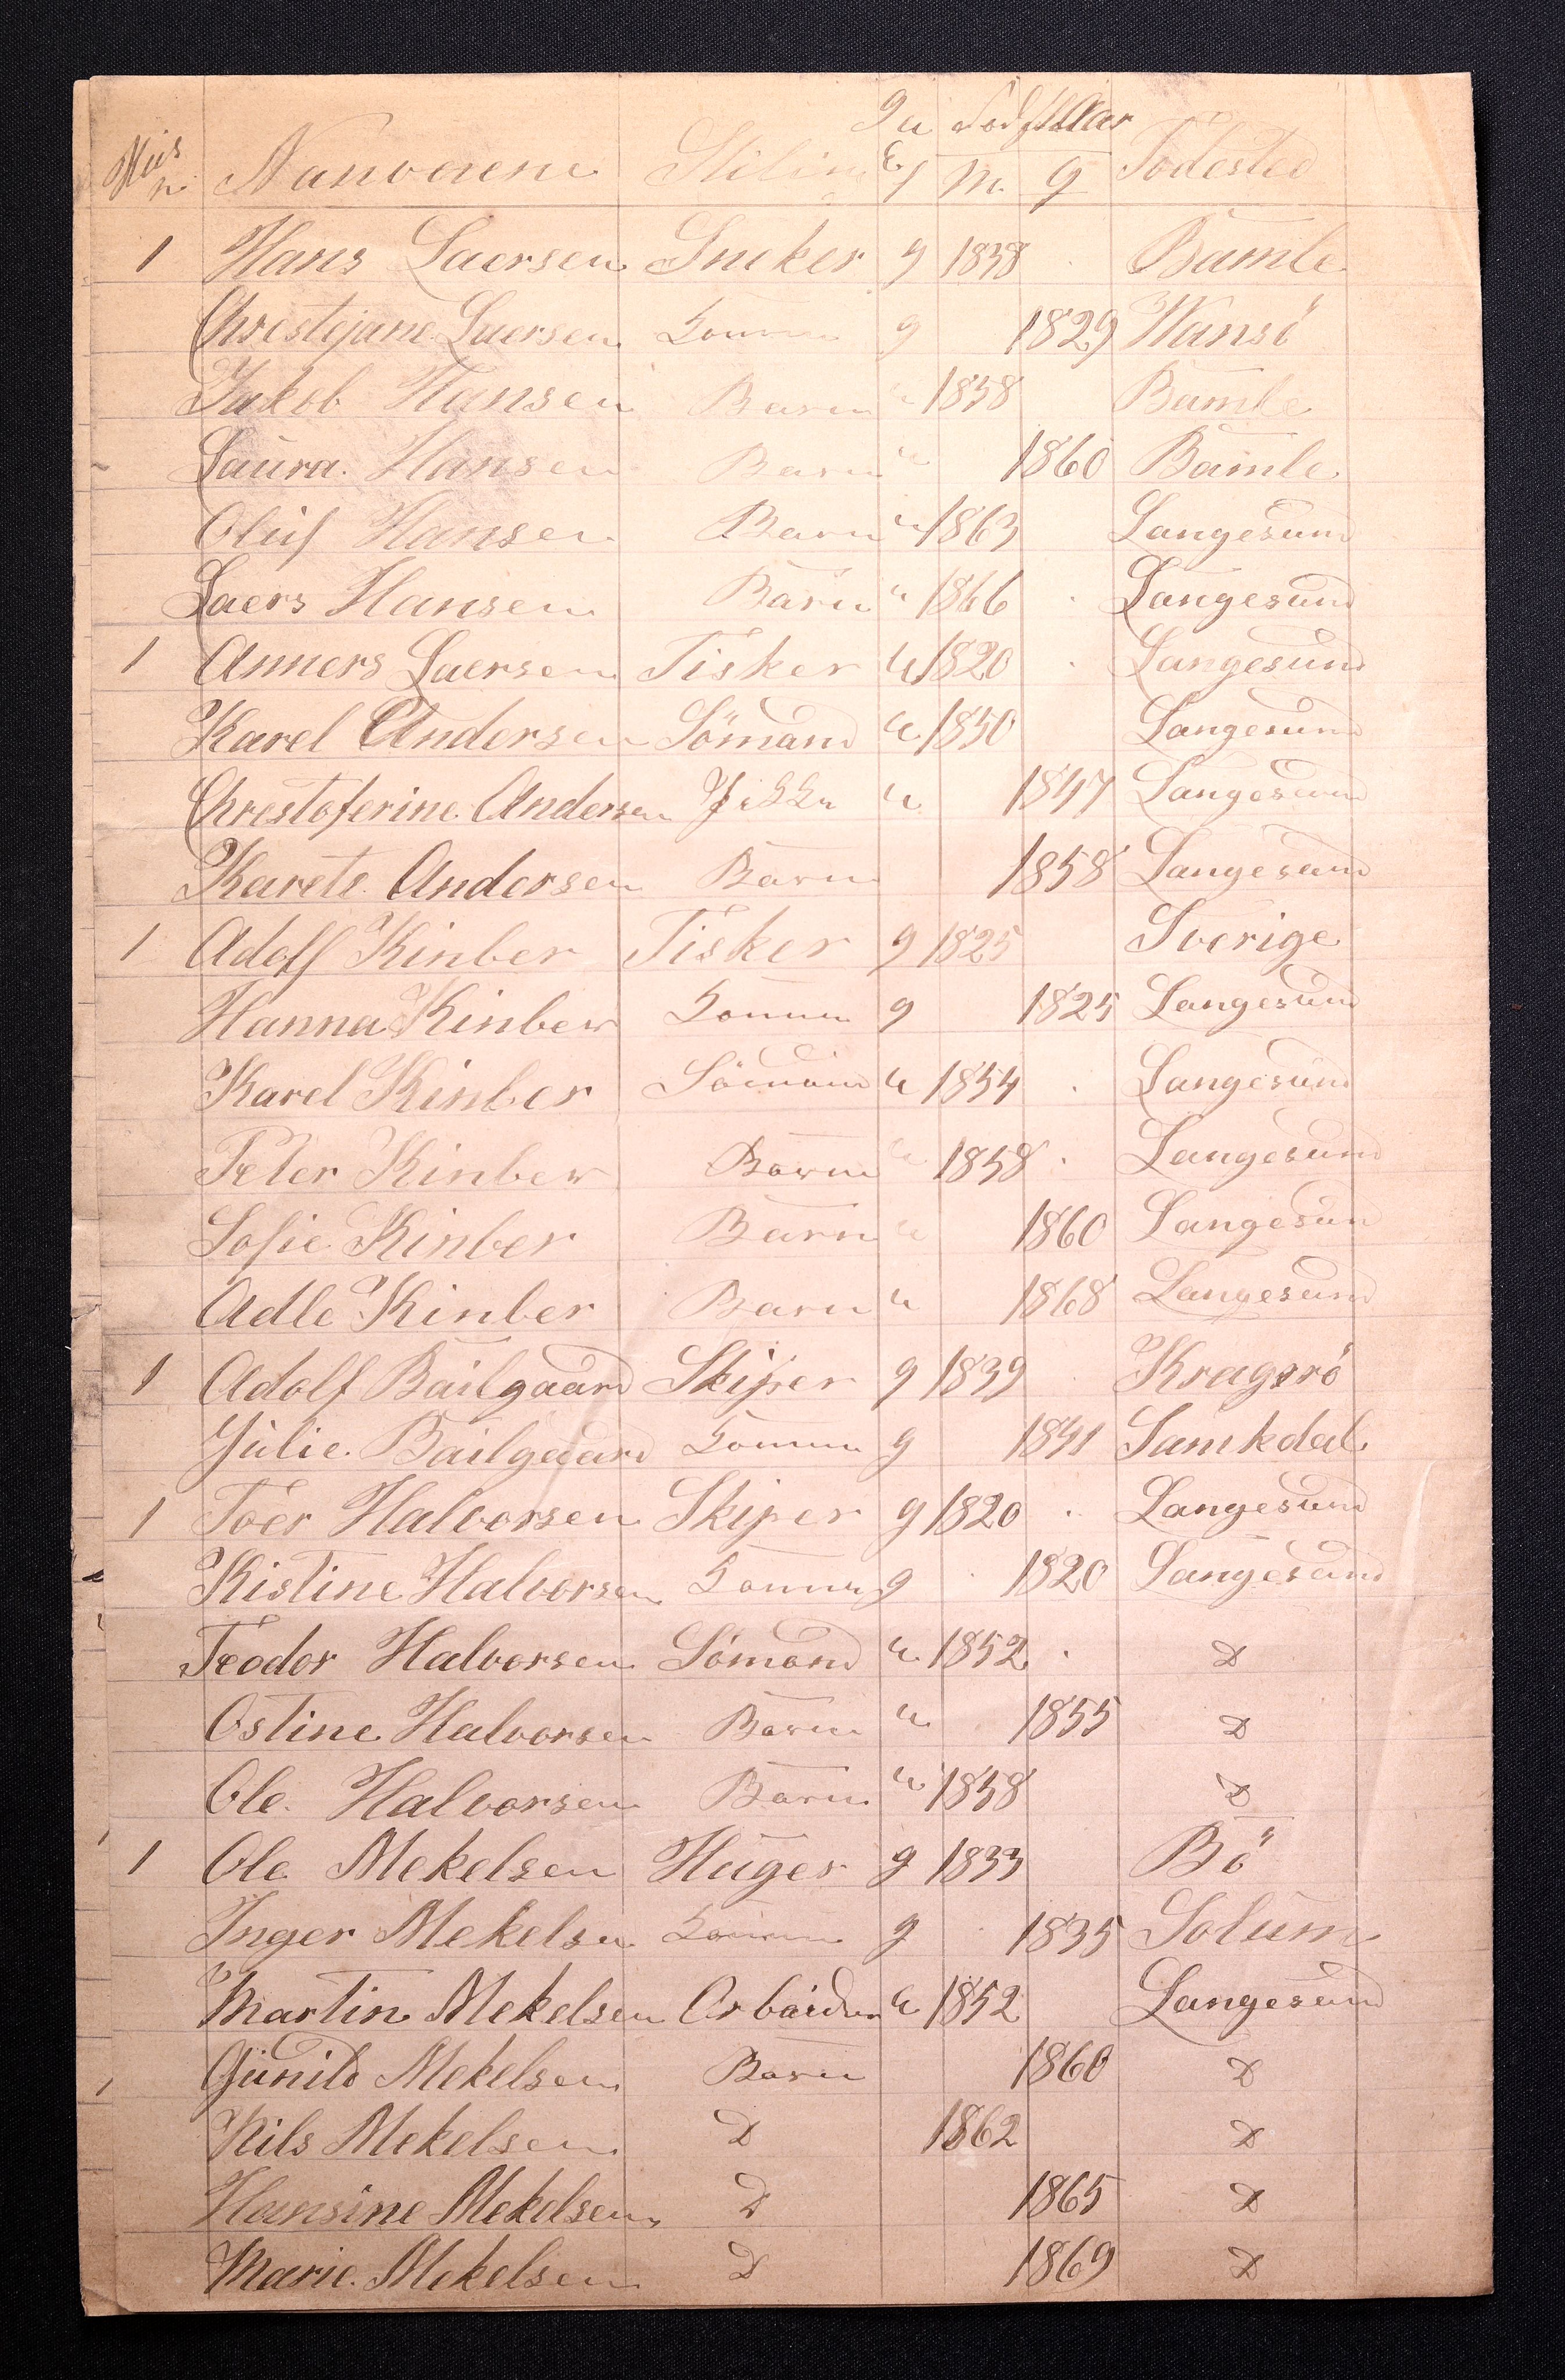 g u Födselaar
Hus n Navnerne Stiling E f M. g Födested
1 Hans Laersen Sneker g 1838 Bamle
Chrestejane Laersen Konnen g 1829 Hansö
Jakob Hansen Barn u 1858 Bamle
Laura Hansen Barn u 1860 Bamle
Oluf Hansen Barn u 1863 Langesund
Laers Hansen Barn u 1866 Langesund
1 Anners Laersen Fisker U 1820 Langesund
Karel Andersen Sömand u 1850 Langesund
Chrestoferine Andersen u 1847 Langesund
Karete Andersen Barn 1858 Langesund
1 Adolf Kinber Fisker g 1825 Sverige
Hanna Kinber Konnen g 1825 Langesund
Karel Kinber Sömand u 1854 Langesund
Peter Kinber Barn u 1858 Langesund
Sofie Kinber Barn u 1860 Langesun
Adle Kinber Barn u 1868 Langesund
1 Adolf Bailgaard Skiper g 1839 Kragerö
Julie Bailgaard Konnen g 1841 Samkdal
1 Toer Halvorsen Skiper g 1820 Langesund
Kistine Halvorsen Konnen g 1820 Langesund
Teodor Halvorsen Sömand u 1852 D
Ostine Halvorsen Barn u 1855 D
Ole Halvorsen Barn u 1858 D
1 Ole Mekelsen Huger g 1833 Bö
Inger Mekelsn Konnen g 1835 Solum
Martin Mekelsen Arbaider u 1852 Langesund
Gunild Mekelsen Barn 1860 D
Nils Mekelsen D 1862 D
Hansine Mekelsen D 1865 D
Marie Mekelsen D 1869 D